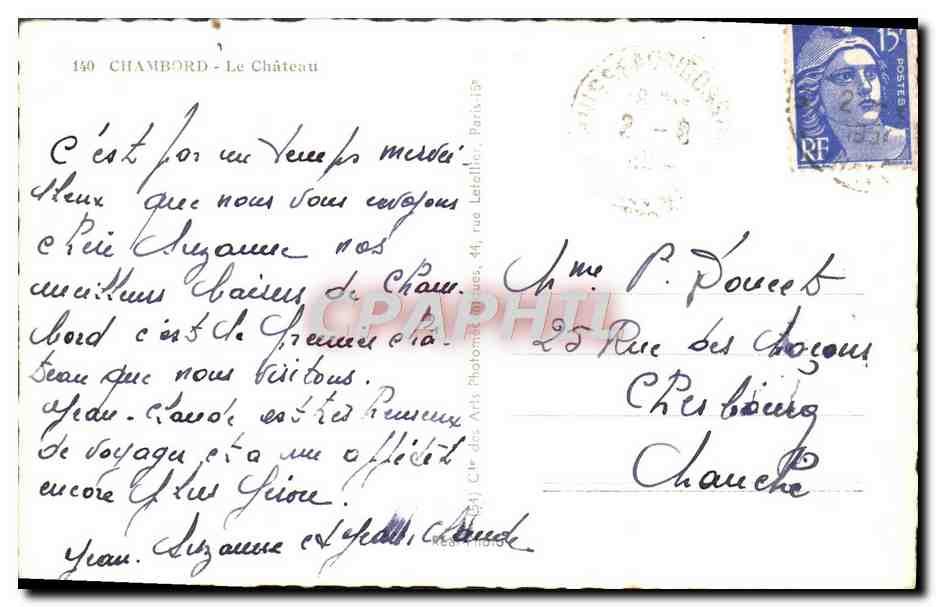 140 CHAMBORD - Le Château
C'est par un temps mervei
lleux que nous vous envoyons
chère Suzanne nos
meilleurs baisers de Cham-
bord c'est le premier châ-
teau que nous visitons.
Jean-Claude est très heureux
de voyager et a un appétit
encore plus féroce.
Jean. Suzanne et Jean. Claude
Cie des Arts Photomécaniques, 44, rue Letellier, Paris-15e
Real Photo
15F
POSTES
RF
2 -
2 -
Mme P. Doucet
25 Rue des Maçons
Cherbourg
Manche
CPAPHIL